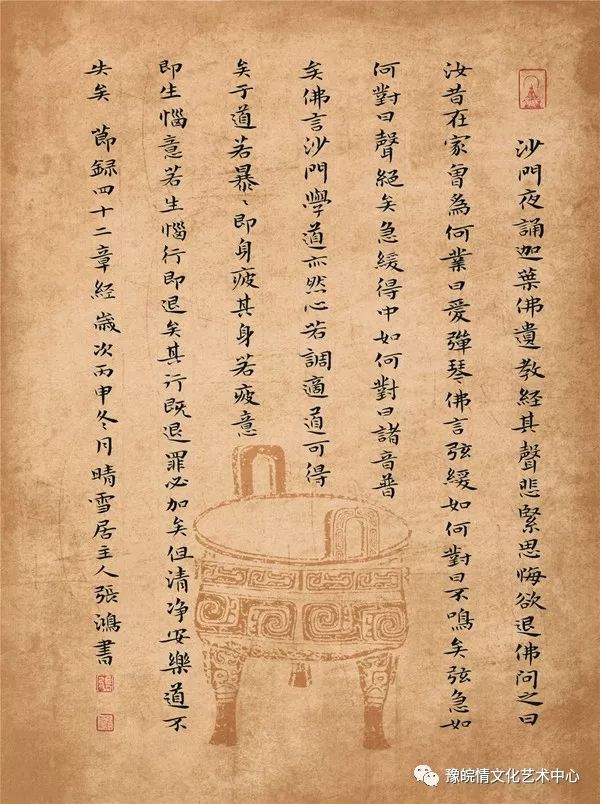 沙門夜誦迦葉佛遺教經其聲悲緊思悔欲退佛問之曰
汝昔在家曾為何業曰愛彈琴佛言弦緩如何對曰不鳴矣弦急如
何對曰聲絕矣急緩得中如何對曰諸音普
矣佛言沙門學道亦然心若調適道可得
矣于道若暴〻即身疲其身若疲意
即生惱意若生惱行即退矣其行既退罪必加矣但清净安樂道不
失矣 節録四十二章經歲次丙申冬月晴雪居主人張鴻書
豫皖情文化艺术中心